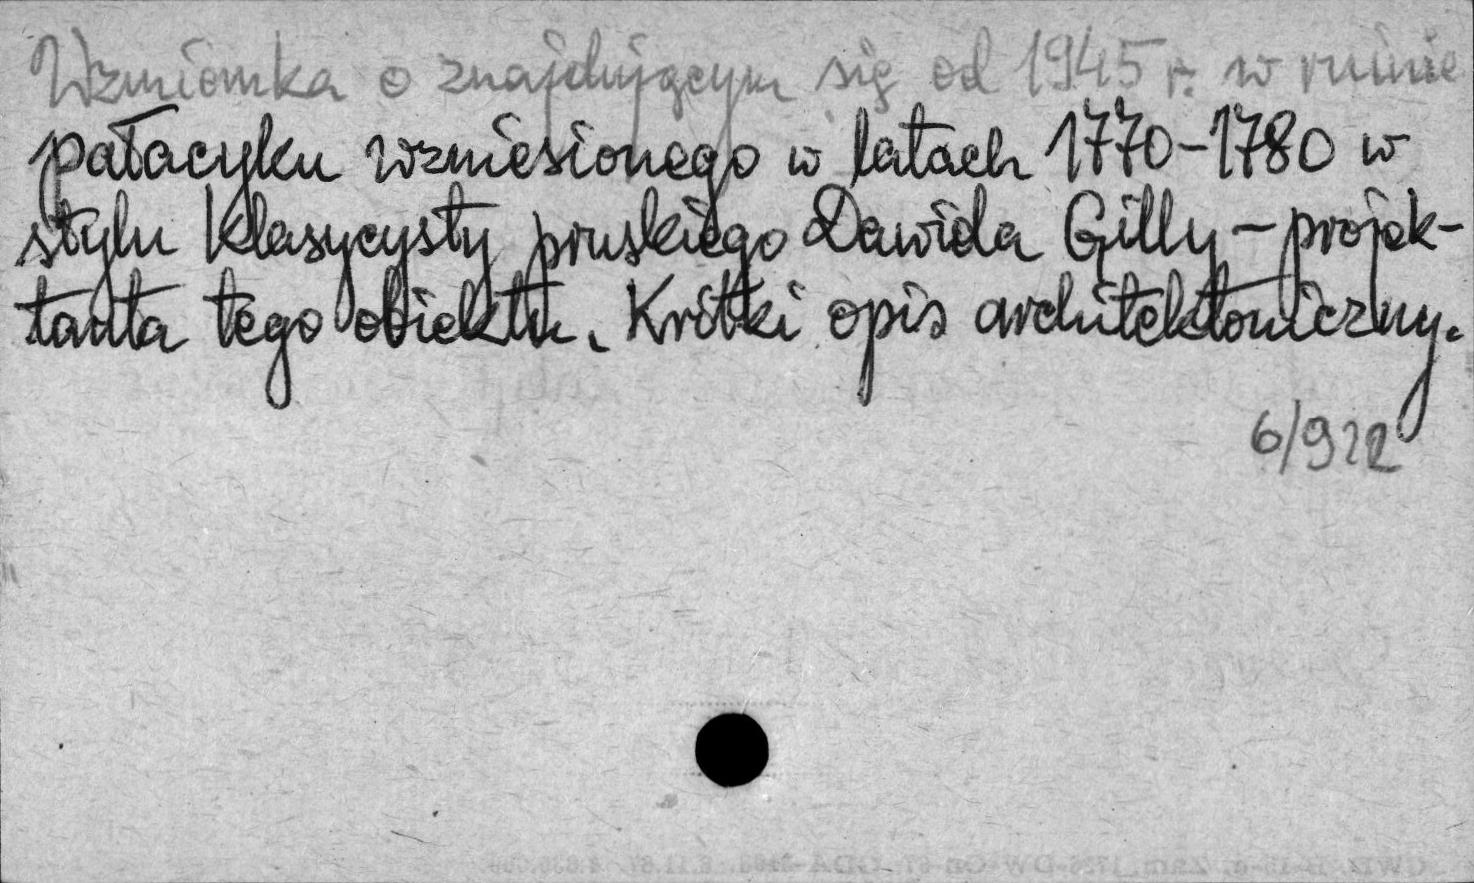 Wzmianka o znajdującym się od 1945 r. w ruinie
pałacyku wzniesionego w latach 1770-1780 w
stylu klasycysty pruskiego Dawida Gilly - projek-
tanta tego obiektu. Krótki opis architektoniczny.
6/922